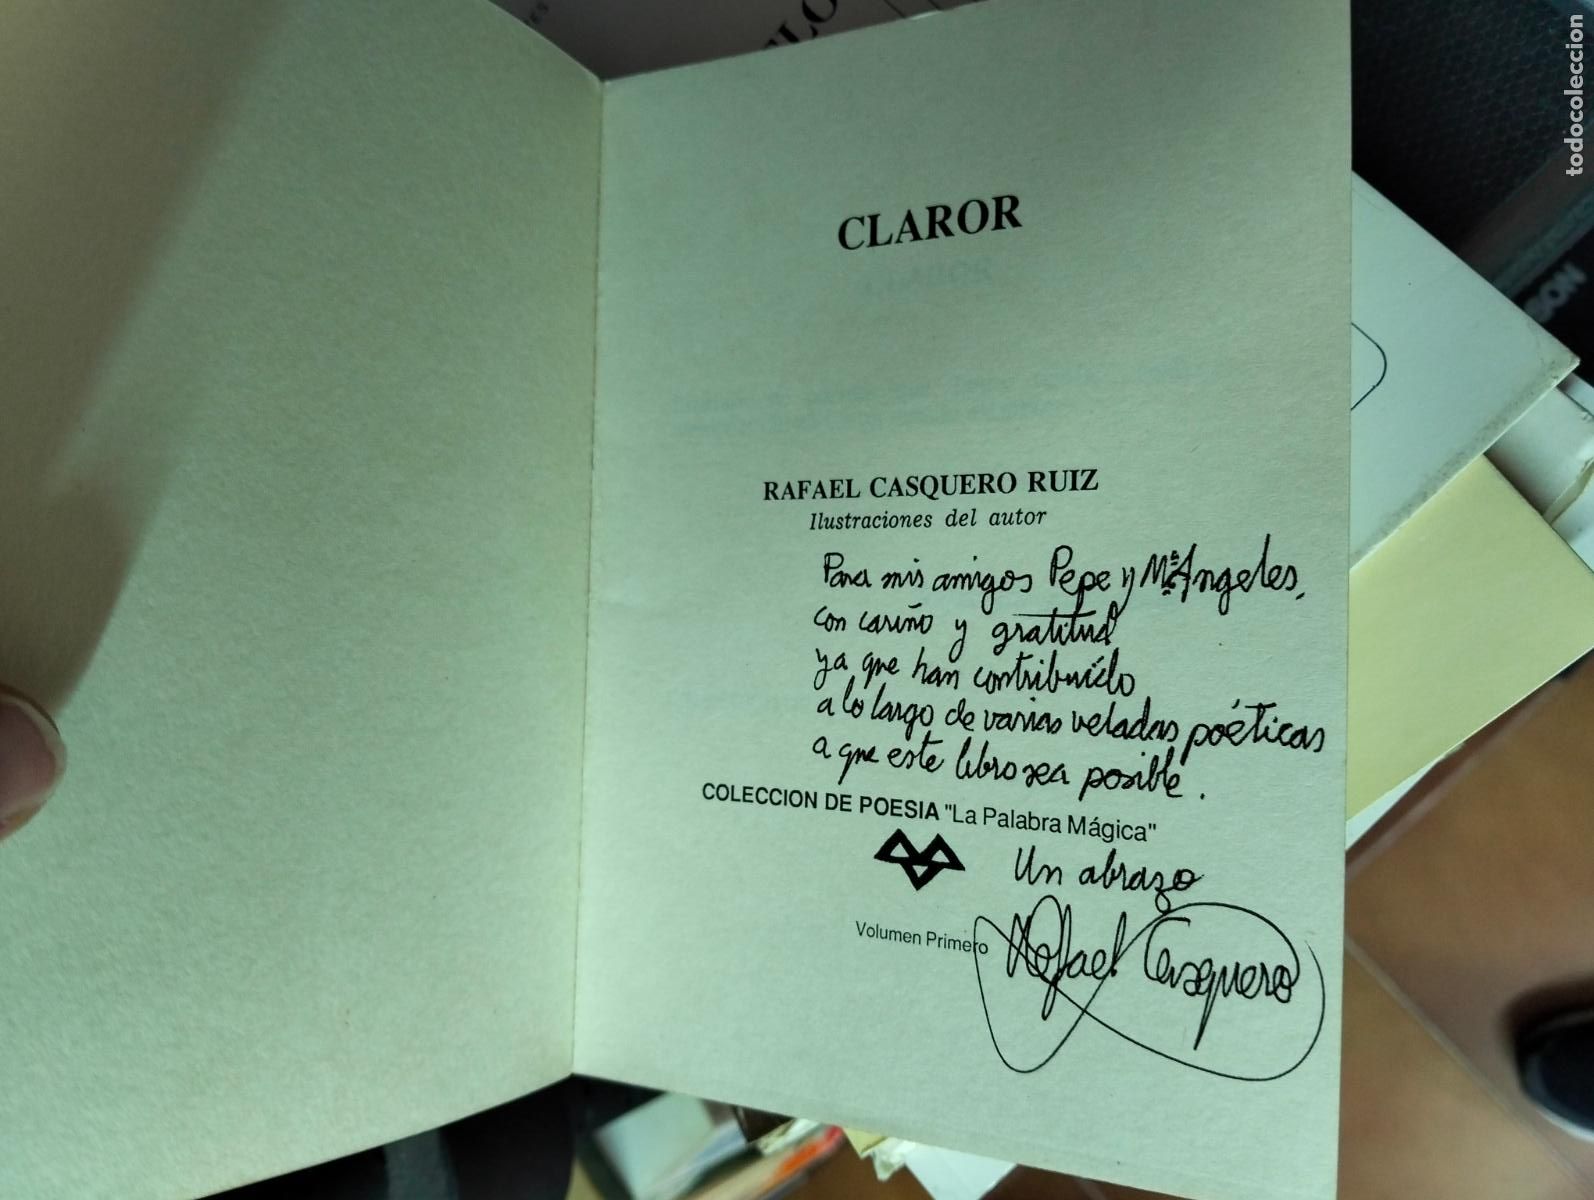 CLAROR
RAFAEL CASQUERO RUIZ
Ilustraciones del autor
Para mis amigos Pepe y Mª Angeles,
con cariño y gratitud
ya que han contribuído
a lo largo de varias veladas poéticas
a que este libro sea posible.
COLECCION DE POESIA "La Palabra Mágica"
Un abrazo
Volumen Primero
Rafael Casquero
todocoleccion